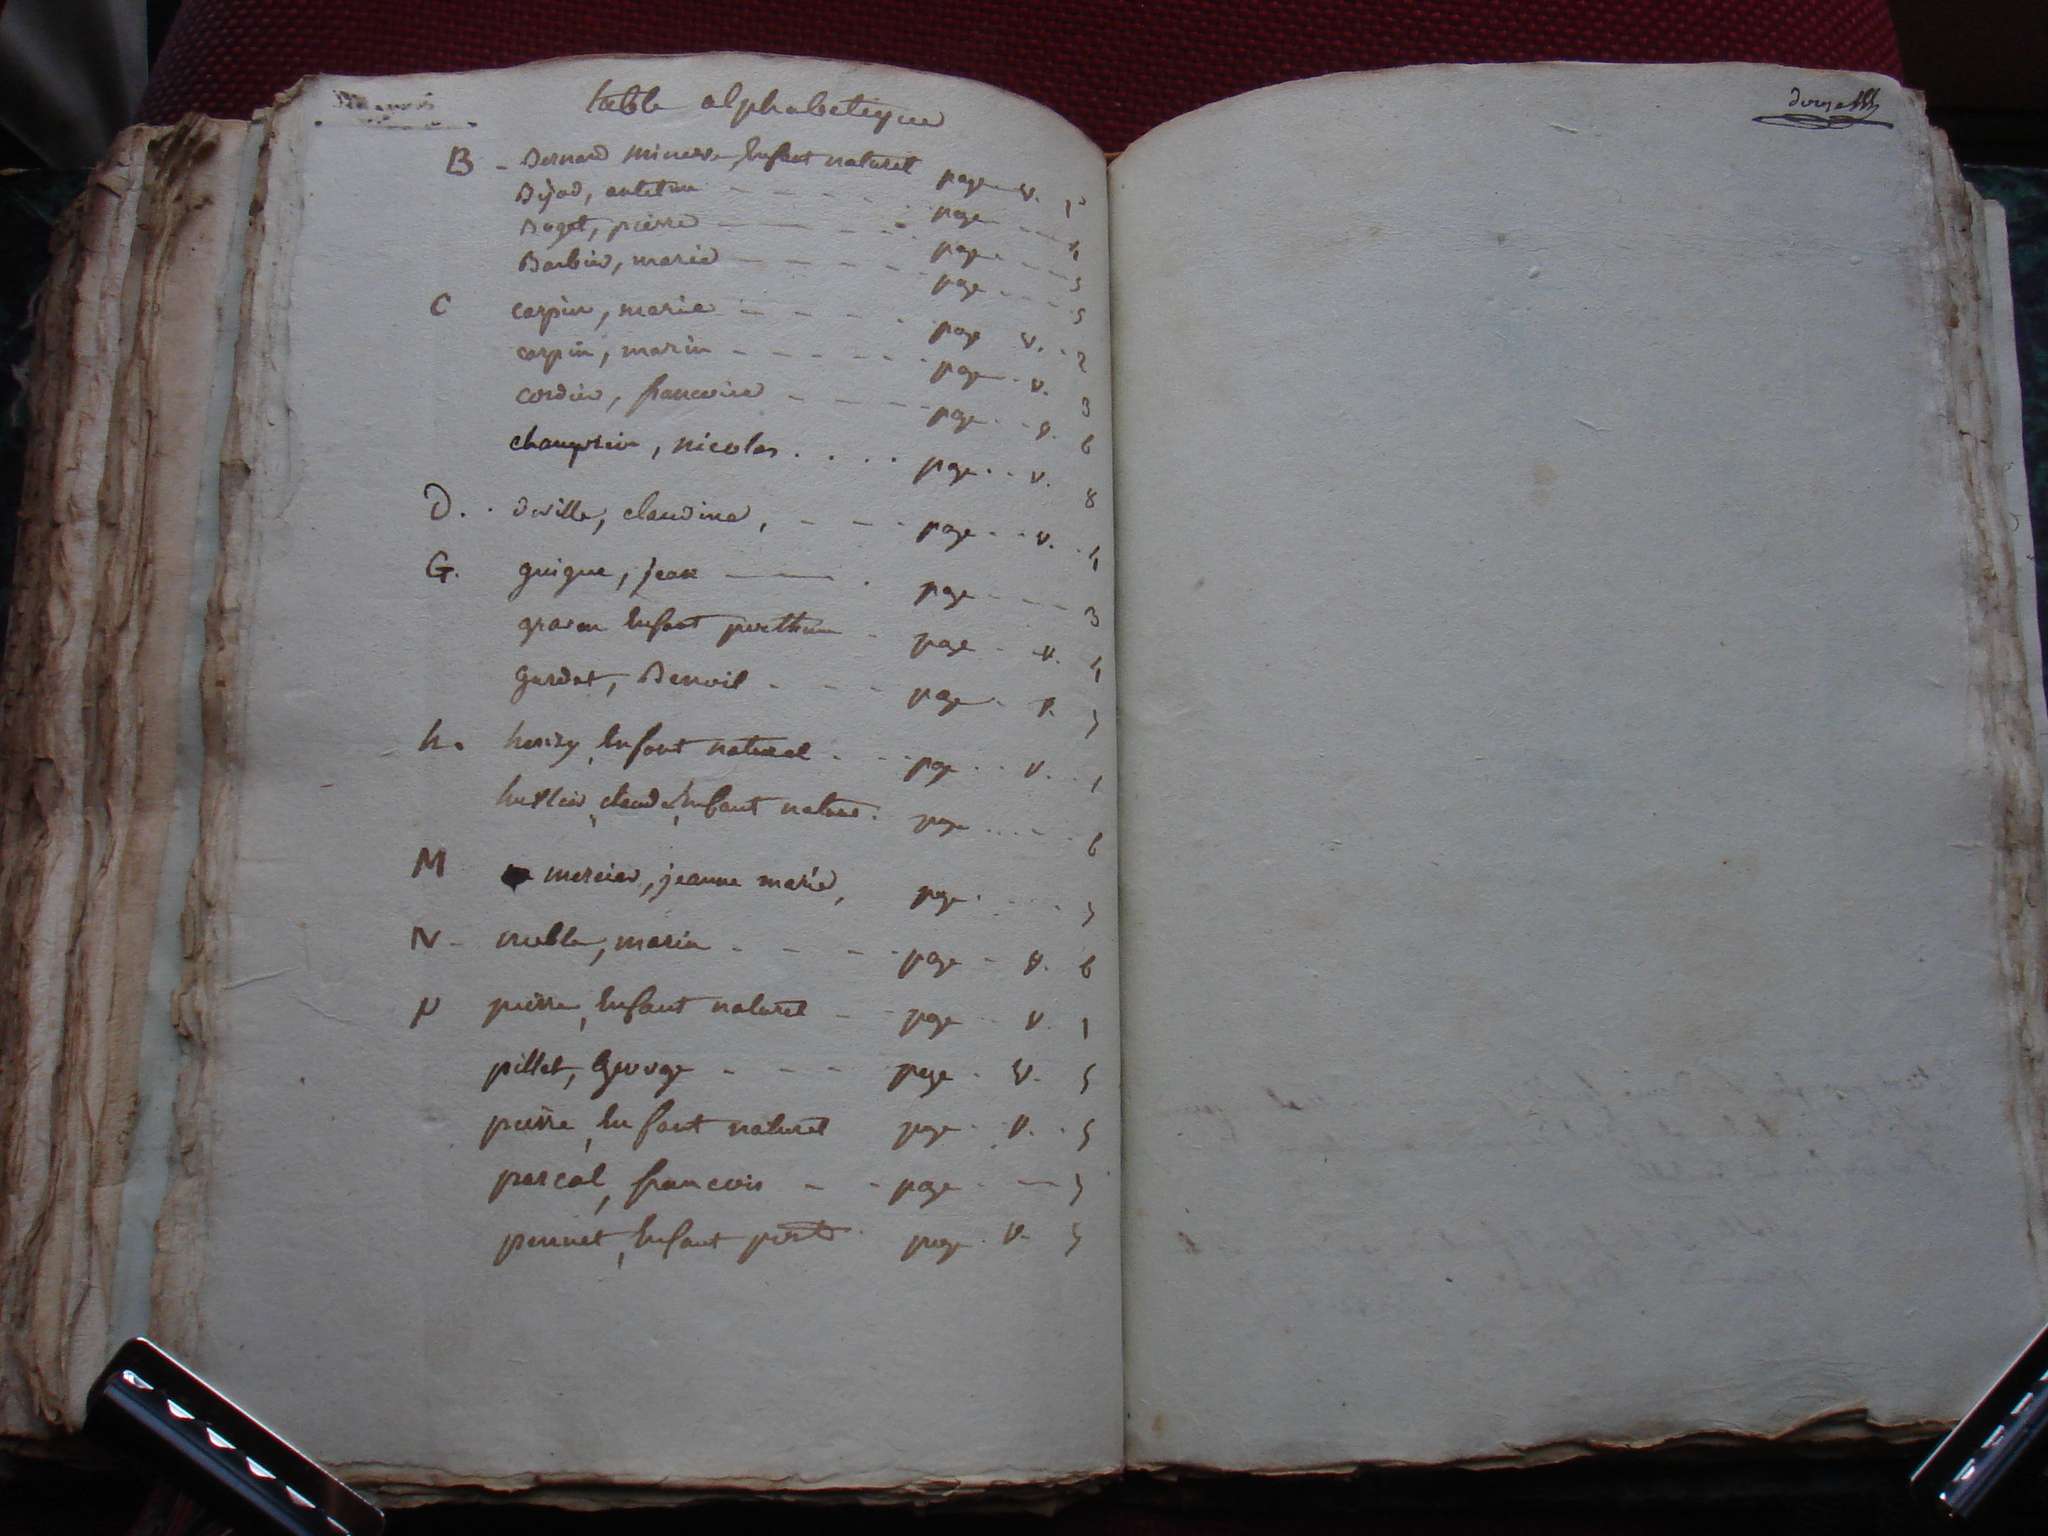 table alphabetique
B - Bernard minerve, Enfant naturel page v. 1
Bijod, antelme page 4
Boget, pierre page 5
Barbier, marie page 5
C carpin, marie page v. 2
carpin, marin page v. 3
cordier, francoise page v. 6
nicolas page v. 8
D. deville, claudine, page v. 4
G. guigue, jean page 3
Enfant posthume page v. 4
gardet, Benoit page v. 5
h. henry, Enfant naturel page v. 1
claude, Enfant naturel page 6
M mercier, jeanne marie, page 5
N - marie page v. 6
p pierre, Enfant naturel page v. 1
pillet, George page v. 5
pierre, Enfant naturel page v. 5
pascal, francois page 5
Enfant page v. 5